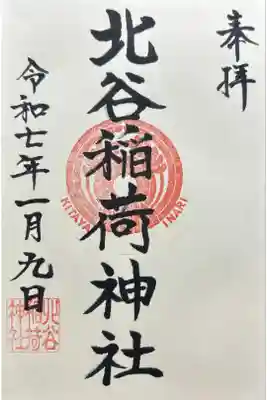 奉拝
北谷稲荷神社
KITAYA INARI
令和七年一月九日
北谷
稲荷
神社